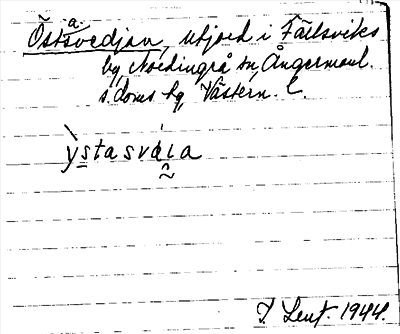 Östasvedjan, utjord i Fällsviks
by, Nordingrå sn, Ångermanl.
s. doms. hg, Västern. l.
ỳstasvála
I. Lent. 1944.